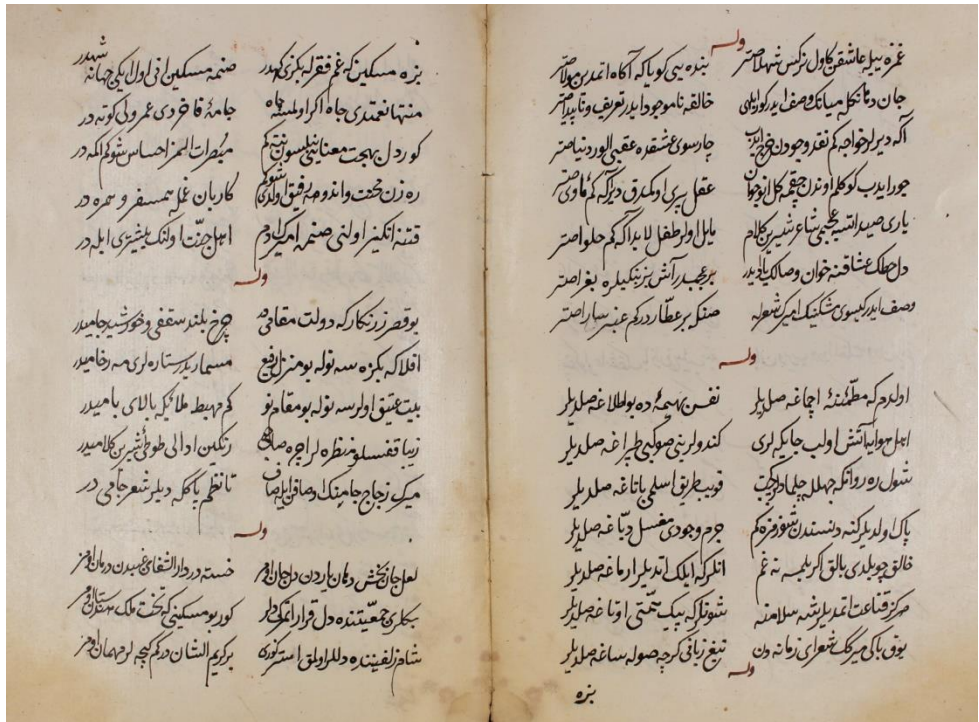 وله
غمزه سیله عاشقن كاول نركس شهلا صتر بنده یی كویا كه آكاه اتمدین مولا صتر
جان دكل میانك وصف ایدر خالقه ناموجود ایدر تعریف و ناپیدا صتر
آكه دیرلر خواجه كم نقد وجودن خرج ایدب چارسوی عشقده عقبی الور دنیا صتر
جور ایدب كوكلم اوندن چقمه كل ای نوجوان عقل پیری اوكندر دیر آكه كم مأوی صتر
یاری صید اتسه عجیمی شاعر شیرین كلام مایل اولر طفل لابد آكه كم حلوا صتر
دل خطك عشاقنه خوان وصالك یاد ایدر بر عجب در آش بز بنكیلره بغرا صتر
وصف ایدر كیسوی مشكینك امیرك شعرله صنكه بر عطار در كم عنبر سارا صتر
وله
اولدم كه مطمئنۀ اچماغه صلدیلر نفس بهیمه ده بولطلاغه صلدیلر
اهل هوایه آتش اولب جایكه لری كندولرینی صو كبی طپراغه صلدیلر
شول ره روانكه جهلله چلمادلر كچت قویب طریق اسلمی باتاغه صلدیلر
پاك اولدیلر كنه دنسندن شو رمزه كم جرم وجودی مغسل دباغه صلدیلر
خالق چو بلدی بالق اكر بلمسه نه غم انلر كه ایلك اتدیلر ارماغه صلدیلر
مركز قناعت اتمدیلر شه سلامنه شونلر كه پیك همتی اوتاغه صلدیلر
یوق باكی میرك شعرای زمانه دن تیغ زبانی كرچه صوله ساغه صلدیلر
وله
بزه
بزه مسكین كه غم فقرله بكزی كهدر صنمه مسكین انی اول ایكی جهانه شهدر
منتها نعمتدی جاه اكر اولمسه جاه جامۀ فاخر دی عمر ولی كوته در
كور دل بهجت معنایی نیلسون نته كم مبصرات المز احساس شو كم اكمه در
ره زن محنت و اندوه رفیق اولدی شو كم كاربان غمله همسفر و همره در
فتنه انكیز اولنی صنمه امیرك آدم اهل جنت اولنك بلیشتری ابله در
وله
بو قصر زرنكار كه دولت مقامیدر چرخ بلند سقفی و خورشید جامیدر
افلاكه بكزه سه نوله بو منزل رفیع مسماریدر ستاره لری مه رخامیدر
بیت عتیق اولرسه نوله بو مقام نو كم مهبط ملائكه بالای بامیدر
زیبا قفسلو منظره لر اچره رنكین ادالی طوطئ شیرین كلامیدر
میرك زجاج جامنك اوصافن ایله صاف تا نظم پاككه دیلر شعر جامی در
وله
لعل جان بخش یاردن دل جان اومر خسته در دار الشفای غیبدن درمان اومر
بكلری جمعیتنده دل قرار اتمك دلر كور بو مسكینی كه تخت ملك
شام زلفینده دللر اولق استر كوری بر كریم الشان در كم كیجه لر مهمان اومر